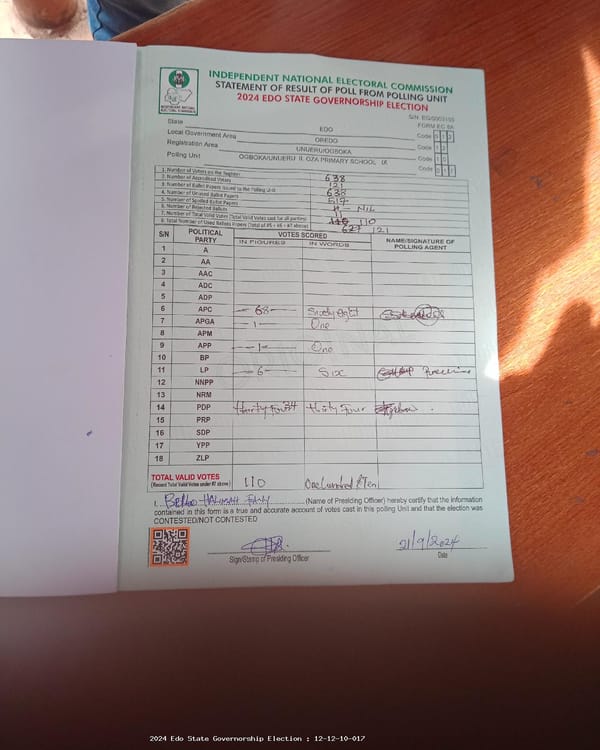 INDEPENDENT NATIONAL ELECTORAL COMMISSION
STATEMENT OF RESULT OF POLL FROM POLLING UNIT
2024 EDO STATE GOVERNORSHIP ELECTION
FORM EC 8A
State EDO Code 1 2
Local Government Area OREDO Code 1 2
Registration Area UNUERU/OGBOKA Code 1 0
Polling Unit OGBOKA/UNUERU II, OZA PRIMARY SCHOOL IX Code 0 1 7
1. Number of Voters on the Register 638
2. Number of Accredited Voters 121
3. Number of Ballot Papers Issued to the Polling Unit 638
4. Number of Unused Ballot Papers 517
5. Number of Spoiled Ballot Papers NIL
6. Number of Rejected Ballots 11
7. Number of Total Valid Votes (Total Valid Votes cast for all parties) 110
8. Total Number of Used Ballot Papers (Total of #5 + #6 + #7 above) 121
S/N POLITICAL PARTY VOTES SCORED NAME/SIGNATURE OF POLLING AGENT
IN FIGURES IN WORDS
1 A
2 AA
3 AAC
4 ADC
5 ADP
6 APC 68 Sixty Eight
7 APGA 1 One
8 APM
9 APP 1 One
10 BP
11 LP 6 Six
12 NNPP
13 NRM
14 PDP thirty Four 34 thirty Four
15 PRP
16 SDP
17 YPP
18 ZLP
TOTAL VALID VOTES 110 One hundred & Ten
(Record Total Valid Votes under #7 above)
I, (Name of Presiding Officer) hereby certify that the information
contained in this form is a true and accurate account of votes cast in this polling Unit and that the election was
CONTESTED/NOT CONTESTED
21/9/2024
Sign/Stamp of Presiding Officer Date
2024 Edo State Governorship Election : 12-12-10-017